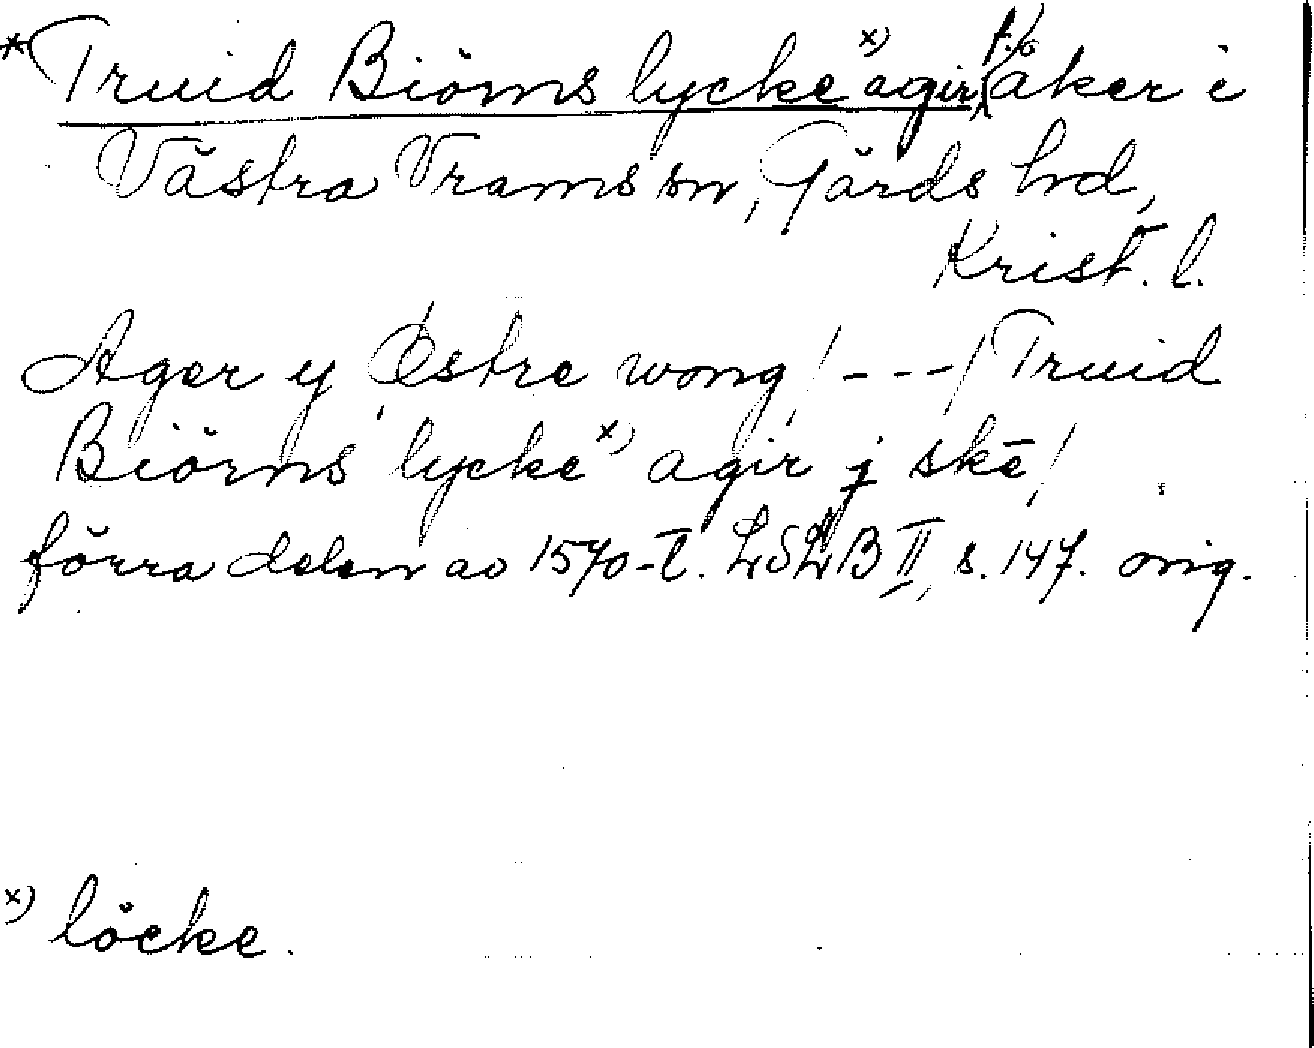 *Truid Biörns lycke x) agir, f.)  åker i
Västra Vrams sn, Gärds hd,
Krist. l.
Ager y Østre wong /---/ Truid
Biörns lycke x) agir j skē/
förra delen av 1570-t. LSLB II, s. 147. orig.
x) löcke.